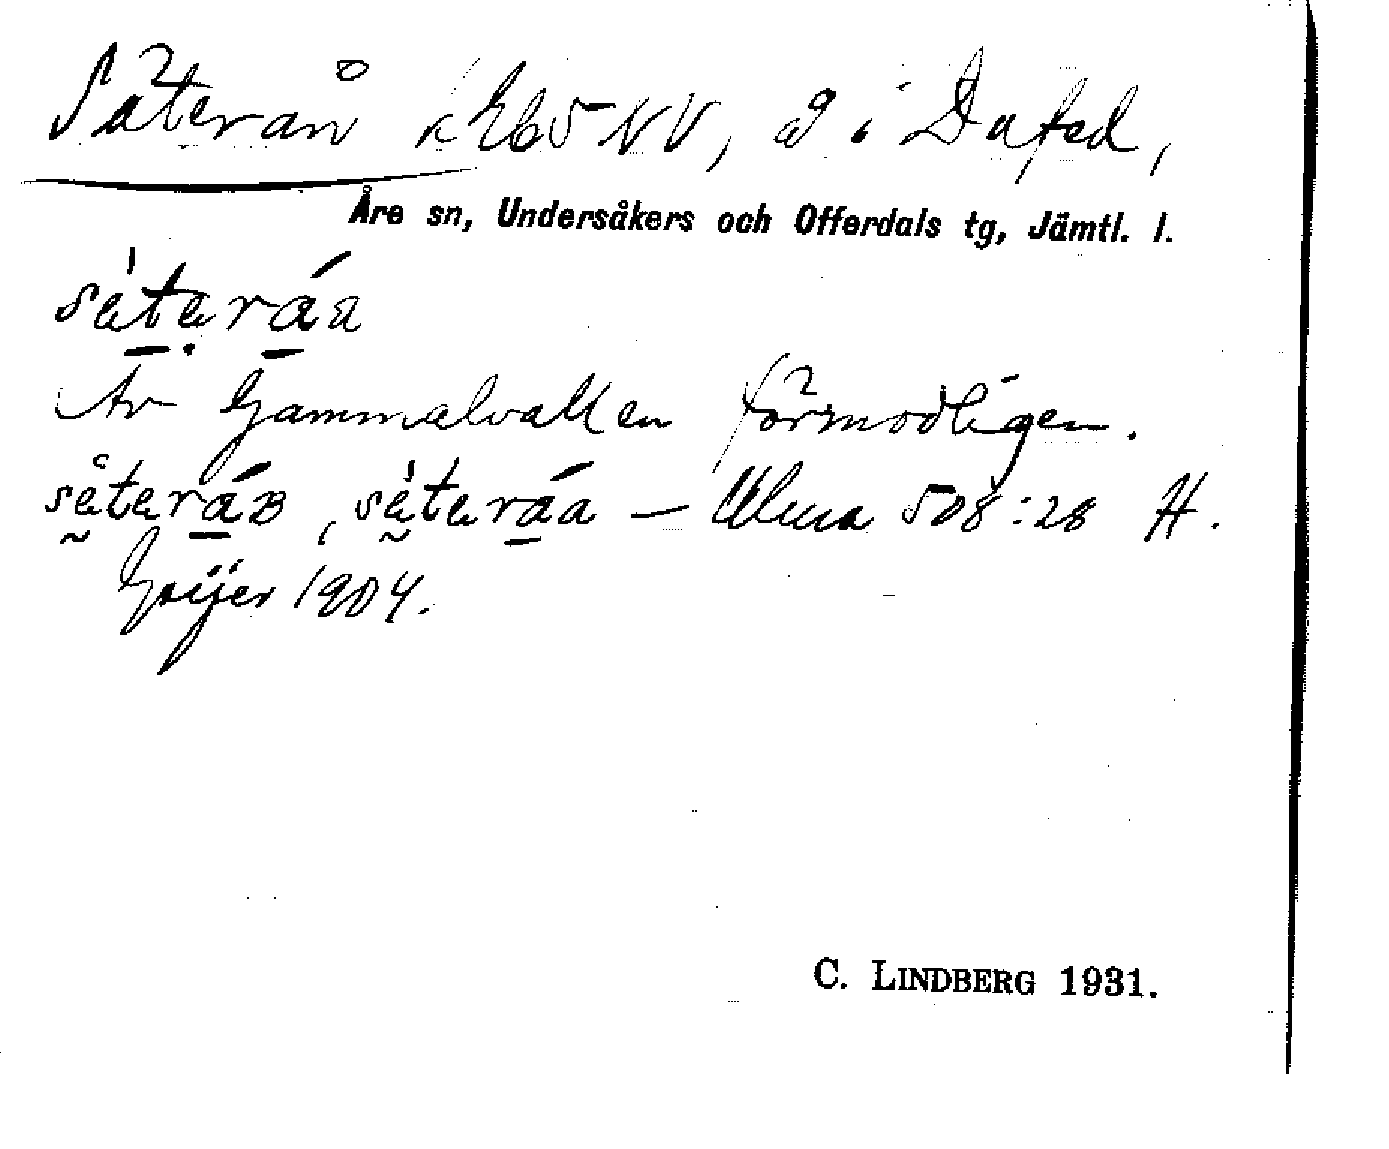 Såterån k Eb5 NV, g i Dufed,
Åre sn, Undersåkers och Offerdals tg, Jämtl. l.
såteráa
Är Gammalvallen förmodligen.
såteráa, såteráa — Ulma 508:28 H.
Geijer 1904.
C. LINDBERG 1931.